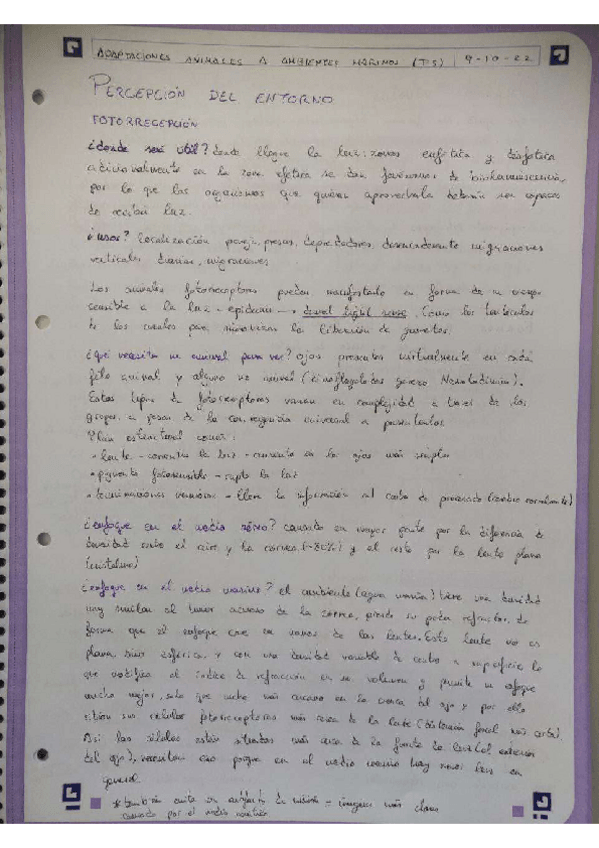 ADAPTACIONES ANIMALES A AMBIENTES MARINOS (T5) 9-10-22
PERCEPCIÓN DEL ENTORNO
FOTORRECEPCIÓN
¿donde será útil? donde llegue la luz: zonas eufótica y disfótica
adicionalmente en la zona afótica se dan fenómenos de bioluminiscencia,
por lo que los organismos que quieran aprovecharla deberán ser capaces
de recibir luz.
¿usos? localización pareja, presas, depredadores, desencadenante migraciones
verticales diarias, migraciones
Los animales fotorreceptores pueden manifestarlo en forma de un cuerpo
sensible a la luz - epidermis - dermal light sense. Como los tentáculos
de los corales para sincronizar la liberación de gametos.
¿qué necesita un animal para ver? ojos presentes virtualmente en cada
filo animal y alguno no animal (dinoflagelados genero Nematodinium).
Estos tipos de fotorreceptores varían en complejidad a través de los
grupos, a pesar de la
Plan estructural común:
• lente - concentra la luz - ausente en los ojos más simples
• pigmento fotosensible - capta la luz
• terminaciones nerviosas - llevan la información al centro de procesado (cerebro normalmente)
¿enfoque en el medio aéreo? causado en mayor parte por la diferencia de
densidad entre el aire y la cornea (~80%) y el resto por la lente plana
(cristalino)
¿enfoque en el medio marino? el ambiente (agua marina) tiene una densidad
muy similar al humor acuoso de la cornea, pierde su poder refractor, de
forma que el enfoque cae en manos de las lentes. Esta lente no es
plana sino esférica, y con una densidad variable de centro a superficie lo
que modifica el índice de refracción en su volumen y permite un enfoque
mucho mejor, solo que mucho más cercano en la cuenca del ojo y por ello
están sus células fotorreceptoras más cerca de la lente (distancia focal más corta).
Así las células están situadas más cerca de la fuente de luz (el exterior
del ojo), necesitan eso porque en el medio marino hay menos luz en
general.
* también
causado por el medio